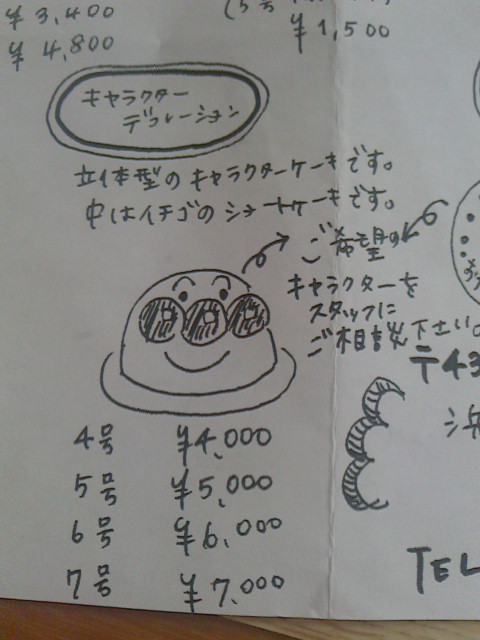 ¥3,400
¥4,800
¥1,500
キャラクター
デコレーション
立体型のキャラクターケーキです。
中はイチゴのショートケーキです。
ご希望の
キャラクターを
スタッフに
ご相談下さい。
〒43
浜
4号 ¥4,000
5号 ¥5,000
6号 ¥6,000
7号 ¥7,000
TEL